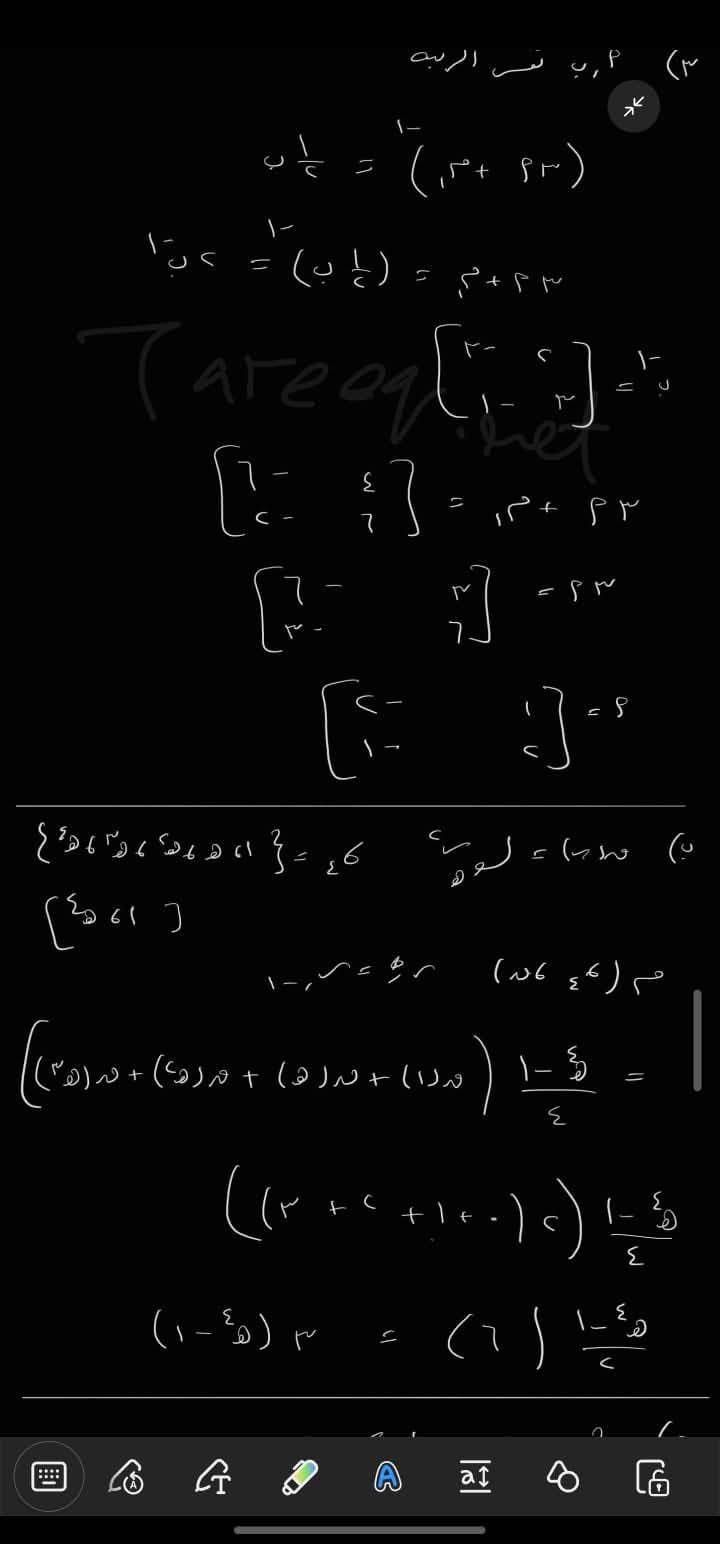 ٣) أ ، ب نفس الرتبة
(٣أ + م،)^-١ = ١/٢ ب
٣أ + م، = (١/٢ ب)^-١ = ٢ب^-١
ب^-١ = [٢ -٣
٣ -١]
Tareeq.net
٣أ + م، = [٤ -٦
٦ -٢]
٣أ = [٣ -٦
٦ -٣]
أ = [١ -٢
٢ -١]
ب) ق(س) = لو_هـ س^٢ σ_٤ = {١، هـ، هـ^٢، هـ^٣، هـ^٤}
[١، هـ^٤]
م(σ_٤، ق) س*_ر = س_ر-١
= (هـ^٤ - ١)/٤ (ق(١) + ق(هـ) + ق(هـ^٢) + ق(هـ^٣))
(هـ^٤ - ١)/٤ (٢(٠ + ١ + ٢ + ٣))
(هـ^٤ - ١)/٢ (٦) = ٣(هـ^٤ - ١)